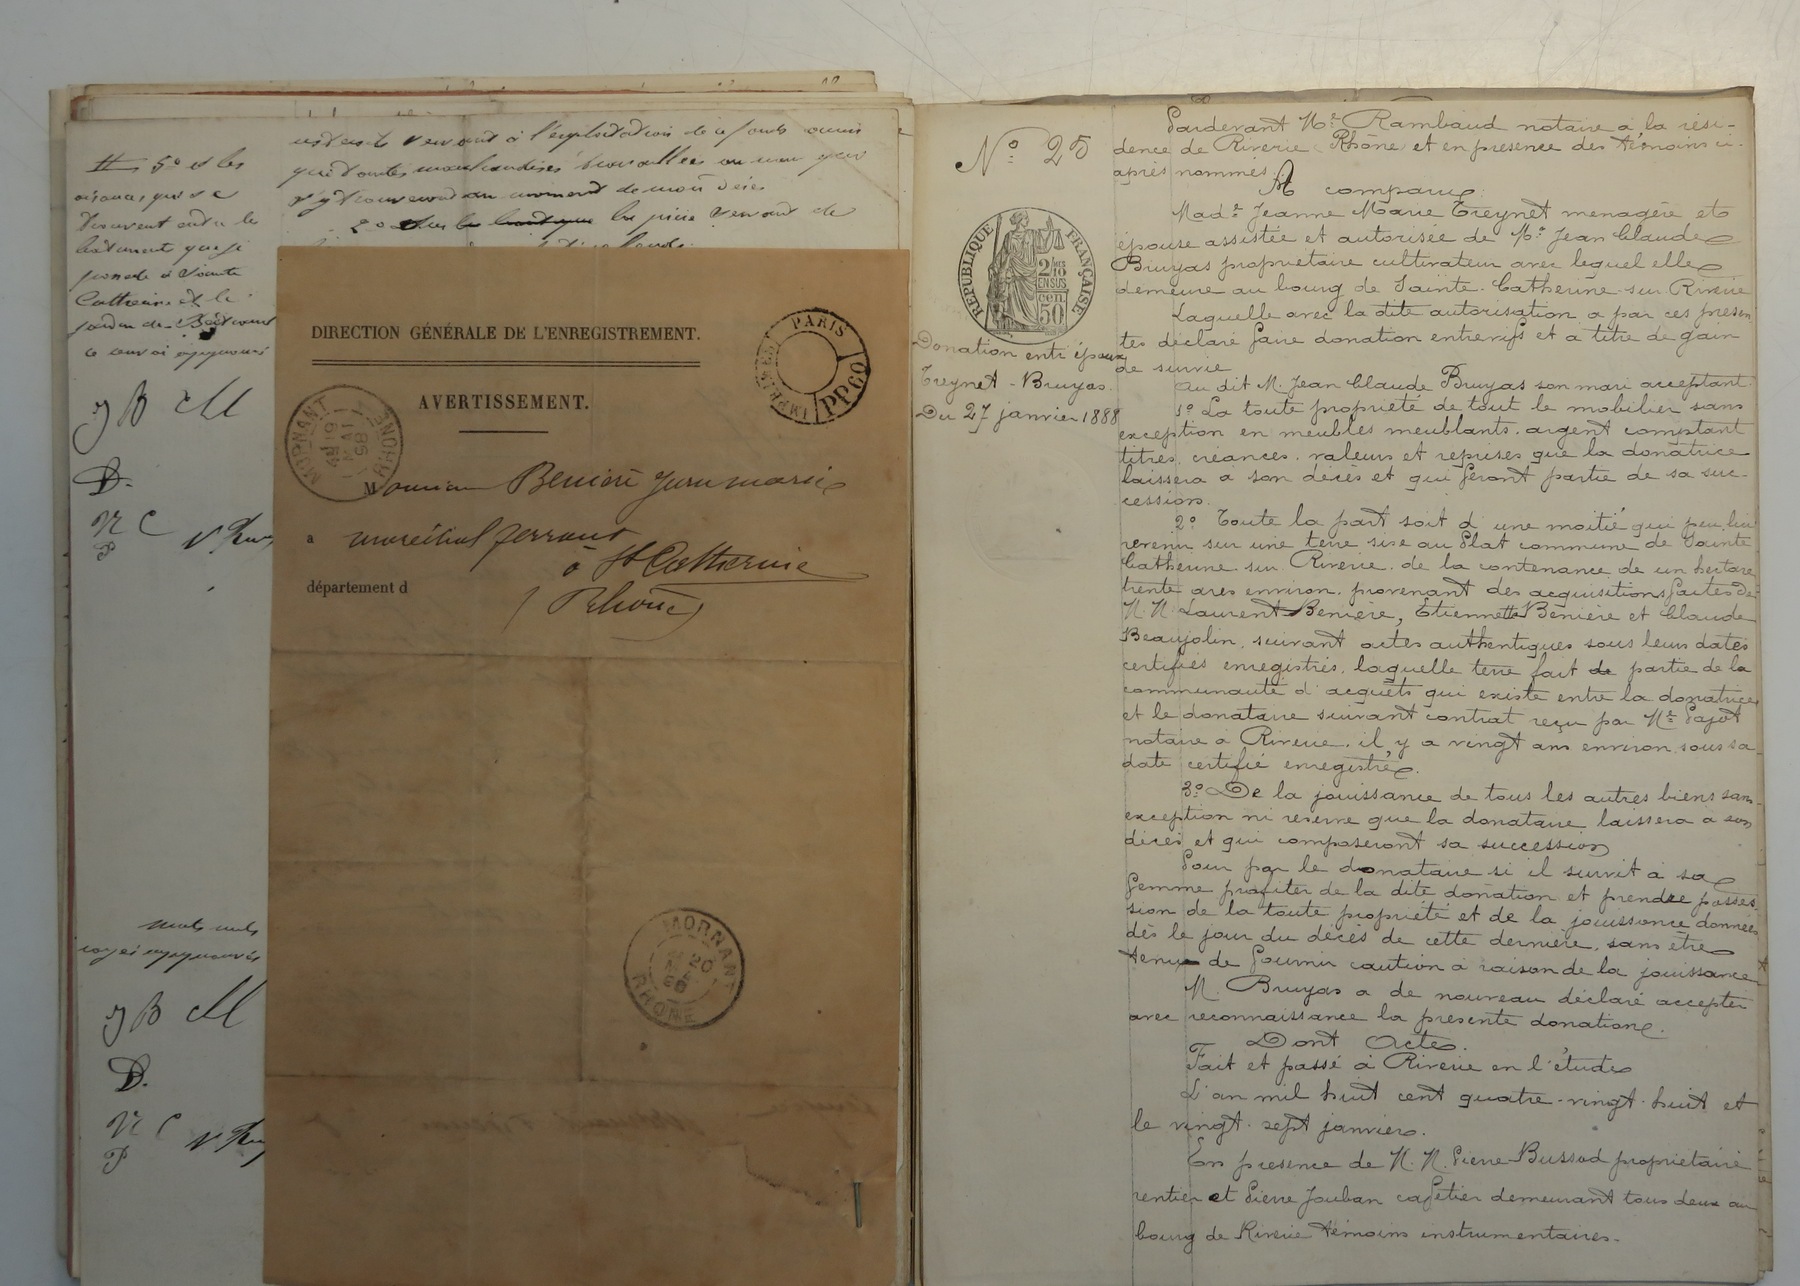 # 5o et les
aisances qui se
trouvent entre les
batiments que je
possede à Sainte
Catherine et le
jardin de
ce renvoi approuvé
JB M
D.
N C
P
mots nuls
rayés approuvés
JB M
D.
N C
P
servant à l'exploitation de ce fonds ainsi
que toutes marchandises travaillées ou non qui
s'y trouveront au moment de mon décès
2o la pièce servant de
DIRECTION GÉNÉRALE DE L'ENREGISTREMENT.
PARIS
PP60
IMPRIMÉS
AVERTISSEMENT.
MORNANT
RHONE
4E 19 MAI 98
Monsieur Benière Jean marie
a maréchal ferrant
à St Catherine
département d
(Rhône)
MORNANT
20
RHONE
No 25
RÉPUBLIQUE FRANÇAISE
2/10 EN SUS
50 cen
Donation entre époux
Treynet - Bruyas.
Du 27 janvier 1888
Pardevant Me Rambaud notaire à la rési-
dence de Riverie (Rhône) et en présence des témoins ci-
après nommés.
A comparu
Made Jeanne Marie Treynet menagère et
épouse assistée et autorisée de Mr Jean Claude
Bruyas propriétaire cultivateur avec lequel elle
demeure au bourg de Sainte-Catherine-sur-Riverie
Laquelle avec la dite autorisation a par ces présen
tes déclaré faire donation entrevifs et à titre de gain
de survie
Au dit M. Jean Claude Bruyas son mari acceptant.
1o La toute propriété de tout le mobilier sans
exception en meubles meublants, argent comptant
titres, créances, valeurs et reprises que la donatrice
laissera à son décès et qui feront partie de sa suc-
cession.
2o Toute la part soit d'une moitié qui peu lui
revenir sur une terre sise au Plat commune de Sainte
Catherine sur Riverie, de la contenance de un hectare
trente ares environ, provenant des acquisitions faites de
M. M. Laurent Benière, Etiennette Benière et Claude
Beaujolin, suivant actes authentiques sous leurs dates
certifiés enregistrés, laquelle terre fait de partie de la
communauté d'acquêts qui existe entre la donatrice
et le donataire suivant contrat reçu par Me Pajot
notaire à Riverie, il y a vingt ans environ sous sa
date certifié enregistré.
3o De la jouissance de tous les autres biens sans
exception ni réserve que la donataire laissera à son
décès et qui composeront sa succession
Pour par le donataire si il survit à sa
femme profiter de la dite donation et prendre posses-
sion de la toute propriété et de la jouissance données
dès le jour du décès de cette dernière, sans être
tenu de fournir caution à raison de la jouissance
M. Bruyas a de nouveau déclaré accepter
avec reconnaissance la présente donation.
Dont Acte.
Fait et passé à Riverie en l'étude
L'an mil huit cent quatre-vingt-huit et
le vingt-sept janvier.
En présence de M. M. Pierre Bussod propriétaire
rentier et Pierre Jouban cafetier demeurant tous deux au
bourg de Riverie témoins instrumentaires.